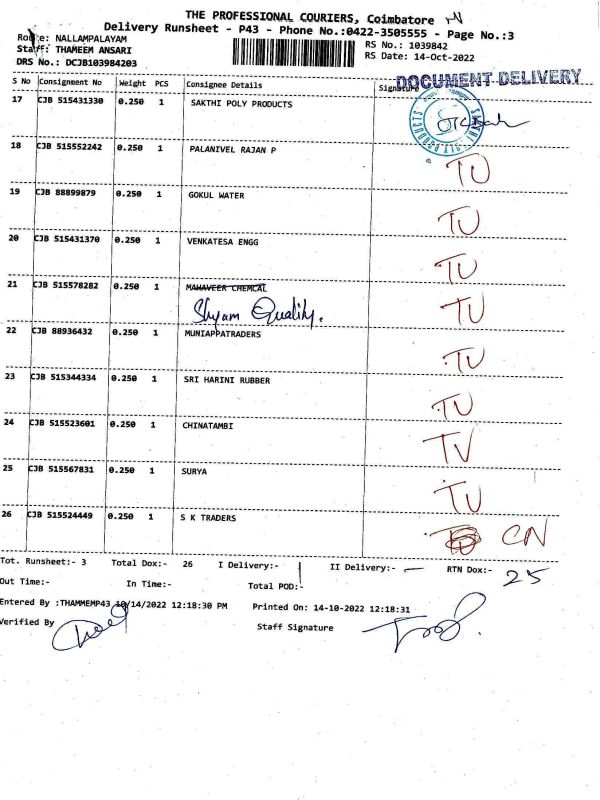 THE PROFESSIONAL COURIERS, Coimbatore
Delivery Runsheet - P43 - Phone No.:0422-3505555 - Page No.:3
Route: NALLAMPALAYAM
RS No.: 1039842
Staff: THAMEEM ANSARI
RS Date: 14-Oct-2022
DRS No.: DCJB103984203
DOCUMENT DELIVERY
S No Consignment No Weight PCS Consignee Details Signature
17 CJB 515431330 0.250 1 SAKTHI POLY PRODUCTS
18 CJB 515552242 0.250 1 PALANIVEL RAJAN P TU
19 CJB 88899879 0.250 1 GOKUL WATER TU
20 CJB 515431370 0.250 1 VENKATESA ENGG TU
21 CJB 515578282 0.250 1 MAHAVEER CHEMCAL TU
Shyam Quality.
22 CJB 88936432 0.250 1 MUNIAPPATRADERS TU
23 CJB 515344334 0.250 1 SRI HARINI RUBBER TU
24 CJB 515523601 0.250 1 CHINATAMBI TV
25 CJB 515567831 0.250 1 SURYA TU
26 CJB 515524449 0.250 1 S K TRADERS CN
Tot. Runsheet:- 3 Total Dox:- 26 I Delivery:- 1 II Delivery:- – RTN Dox:- 25
Out Time:- In Time:- Total POD:-
Entered By :THAMMEMP43 10/14/2022 12:18:30 PM Printed On: 14-10-2022 12:18:31
Verified By Staff Signature